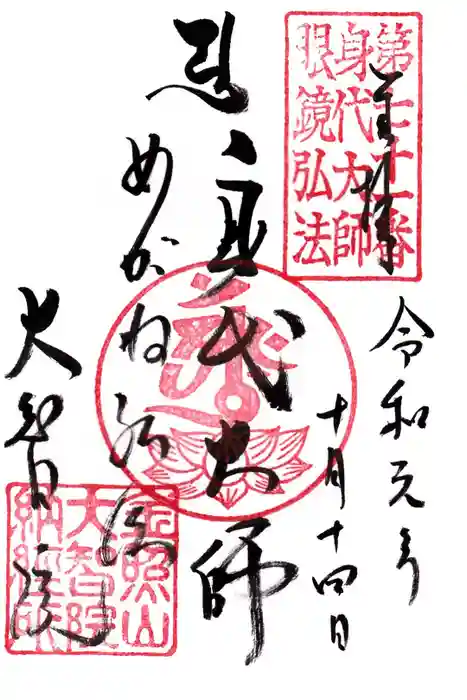 第七十一番
身代大師
眼鏡弘法
奉拝
令和元年
十月十四日
身代大師
めがね弘法
大智院
金照山
大智院
納経所